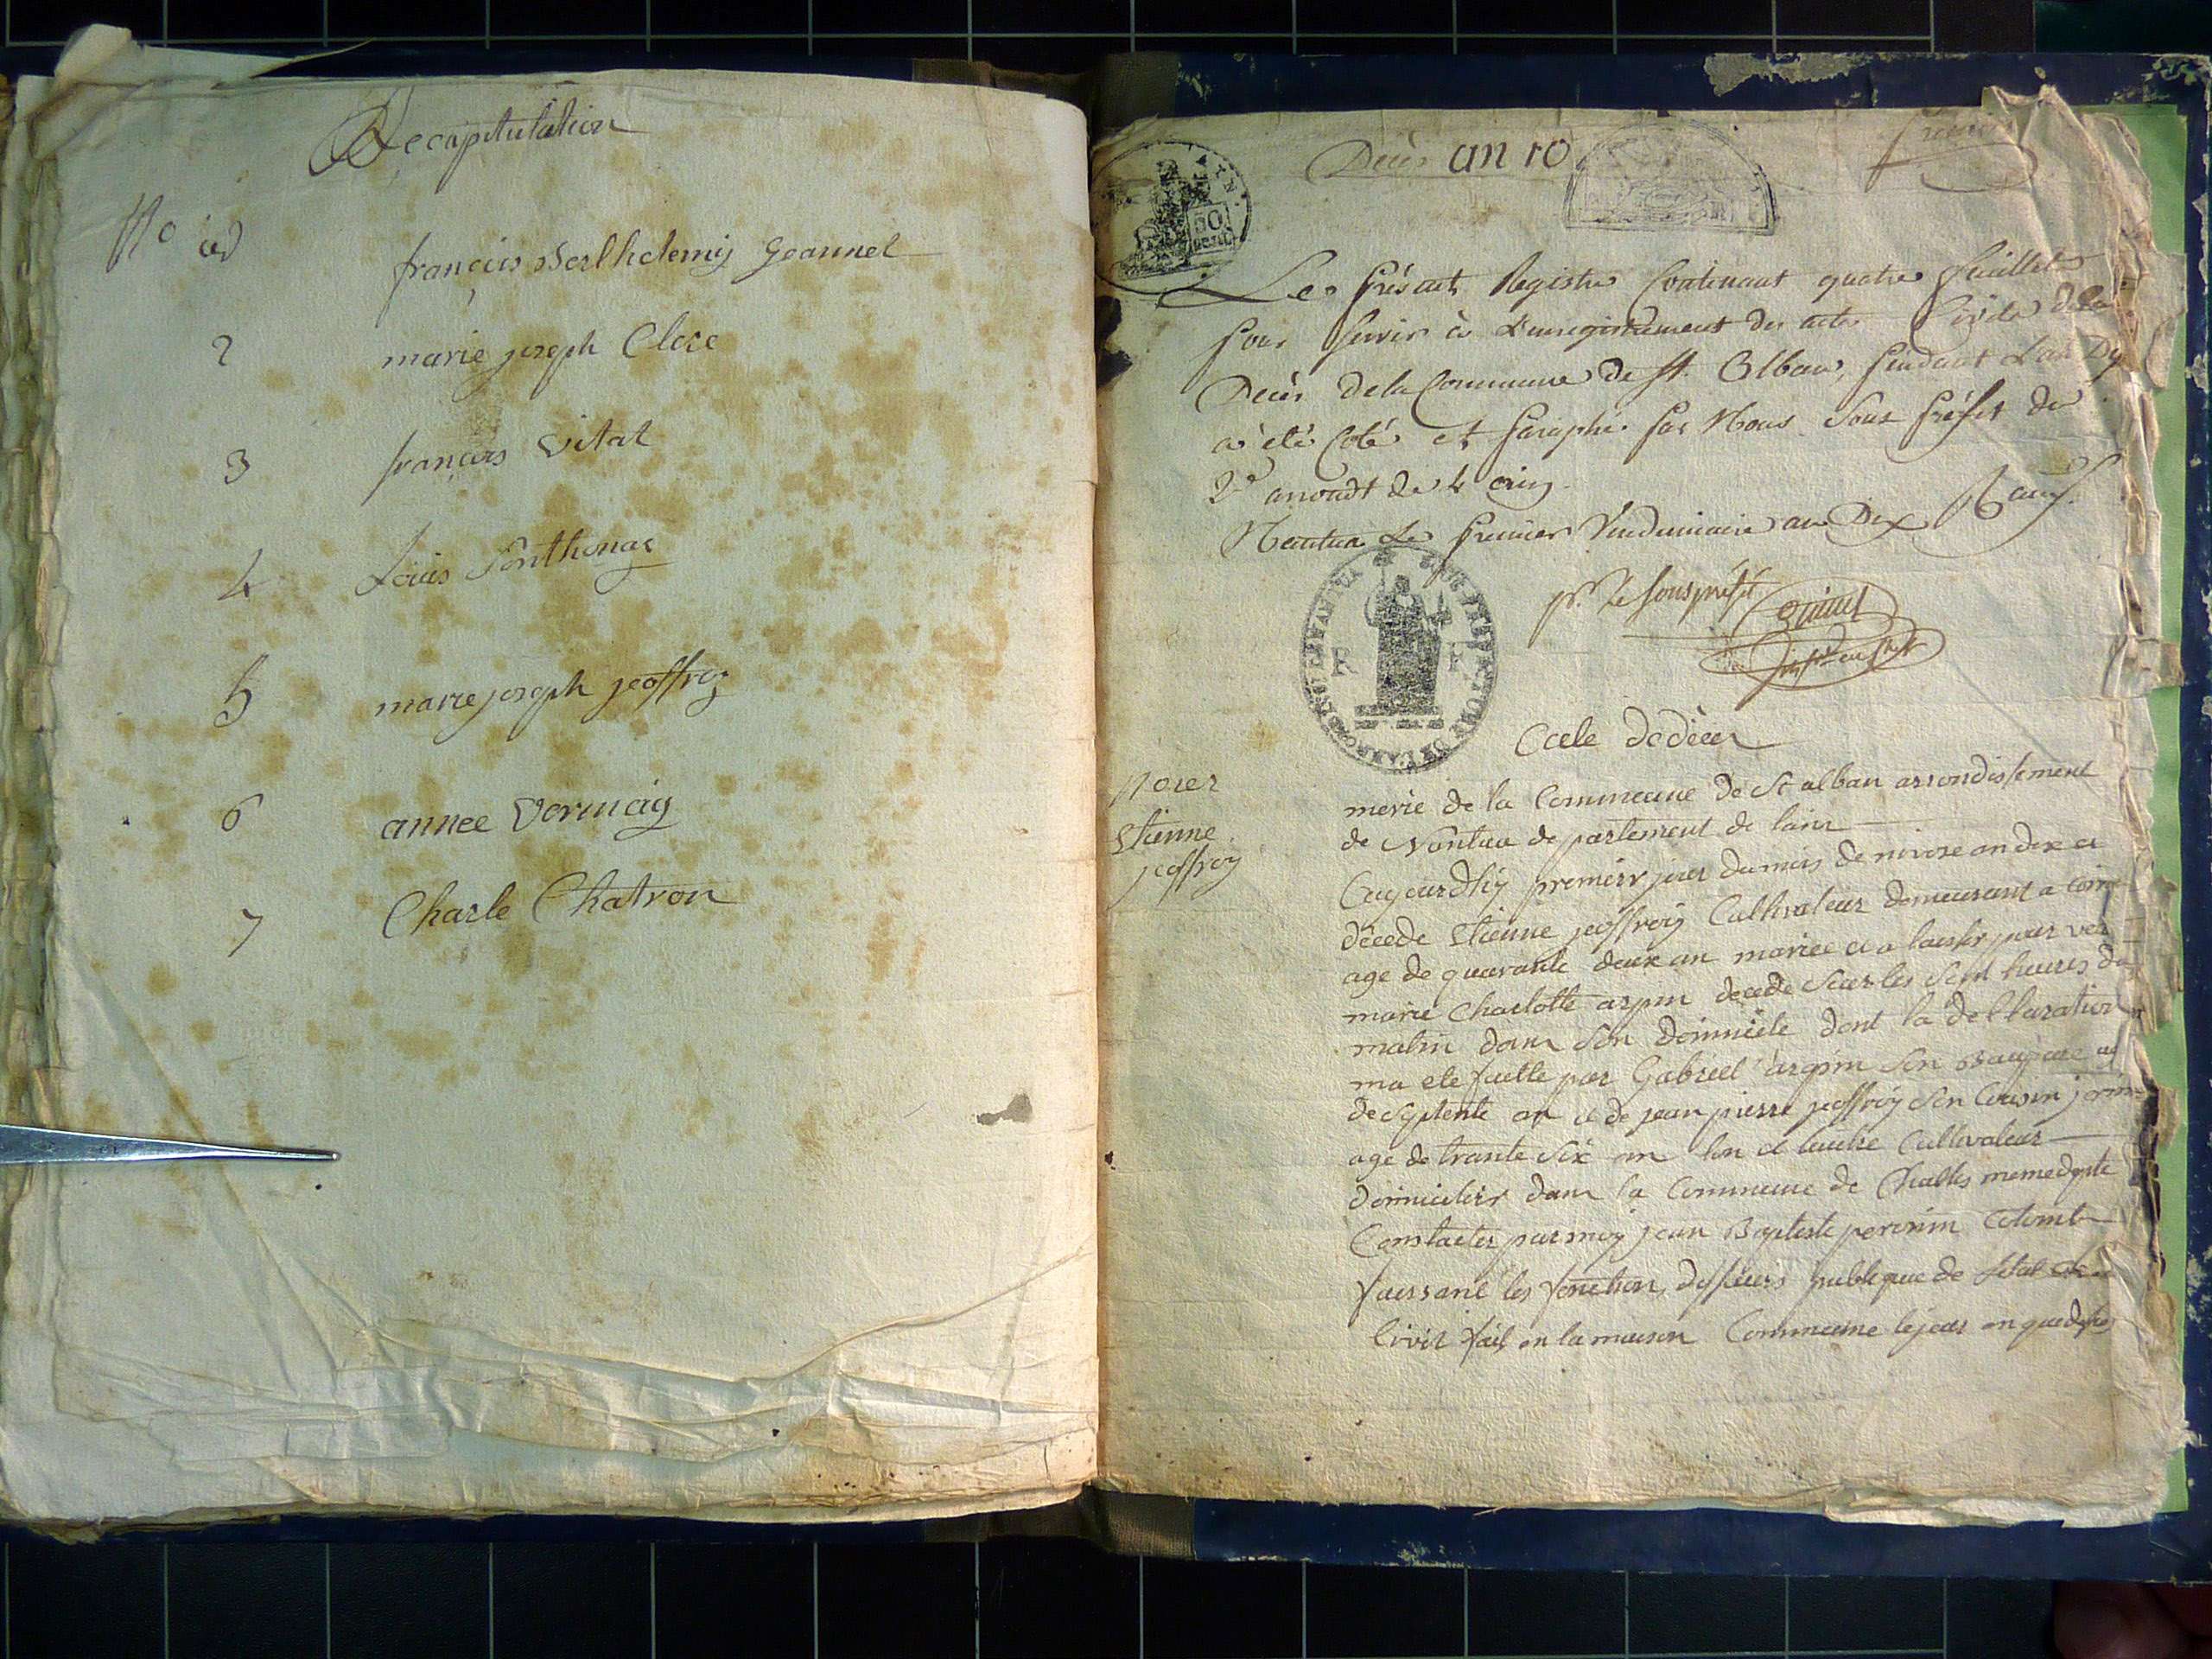 Recapitulation
No
françois Barthelemy Jeannet
2 marie joseph Clere
3 françois Vital
4 Louis Ponthonas
5 marie joseph jeoffroy
6 annee Vermay
7 Charle Chatron
Décès an 10
premier
50
Le Présent Registre Contenant quatre feuillets
pour servir à L'enregistrement des actes Civils de la
Décès de la Commune de St. Alban, pendant L'an Dix
a été Coté et paraphé par Nous Sous préfet du
2e arrondt de L'ain
Nantua Le premier Vendemiaire an Dix
pr. Le sous préfet
R F
acte de décès
Etienne
jeoffroy
merie de la Commeune de St alban arrondissement
de Nantua departement de lain
aujourdhuy premier jour du mois de nivose an dix et
décédé Etienne jeoffroy Cultivateur demeurant a
age de quarante deux an mariee et a laisser pour
marie Charlotte arpin decede sur les sept heures du
matin dans son domicile dont la declaration
ma ete faitte par Gabriel arpin son Baupere
de septente an et de jean pierre jeoffroy son Cousin
age de trante six an lun et lautre Cultivateur
domicilier dans la Commeune de Challes
Constater par moy jean Baptiste peronin
faissant les fonction publique de letat
Civil fait en la maison Commeune le jour an que dessus